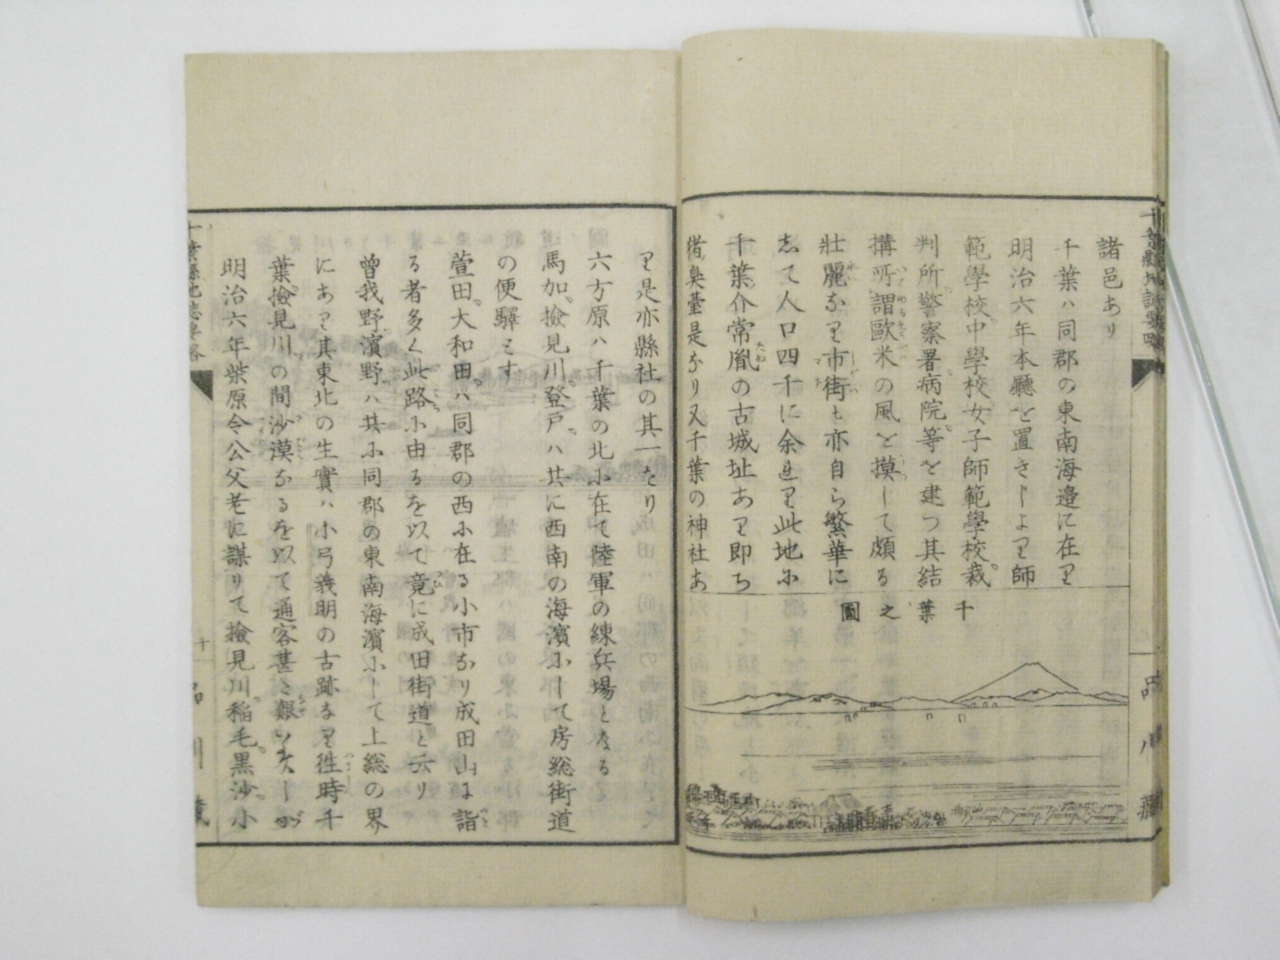 諸邑あり
千葉ハ同郡の東南海邉に在り
明治六年本廳を置さしより師
範學校中學校女子師範學校裁
判所警察署病院等を建つ其結
搆所謂歐米の風を摸して頗る
壮麗なり市街も亦自ら繁華に
志て人口四千に余れり此地に
千葉介常胤の古城址あり即ち
猪臭臺是なり又千葉の神社あ
千葉之圖
り是亦縣社の其一なり
六方原ハ千葉の北に在て陸軍の練兵場となる
馬加撿見川登戸ハ共に西南の海濱にして房総街道
の便驛とす
萱田大和田ハ同郡の西に在る小市なり成田山に詣
る者多く此路に由るを以て竟に成田街道と云り
曾我野濱野ハ共に同郡の東南海濱にして上総の界
にあり其東北の生實ハ小弓義明の古跡なり徃時千
葉撿見川の間沙漠なるを以て通客甚た艱めしが
明治六年柴原令公父老に謀りて撿見川稲毛黒沙小
千葉縣地誌畧
十
品川藏